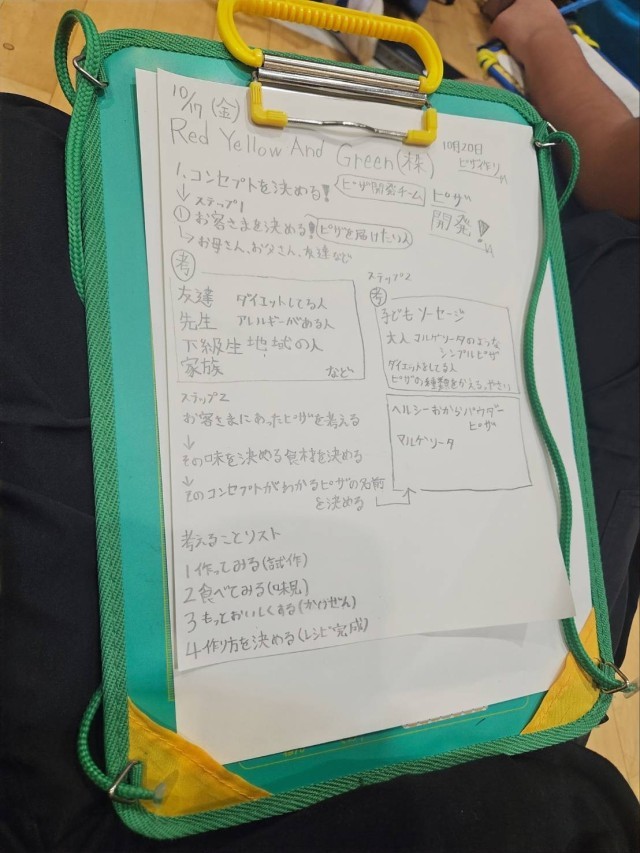 10/17(金)
Red Yellow And Green(株)
10月20日
ピザ作り
1.コンセプトを決める!
ピザ開発チーム
ピザ
開発!
↓ステップ1
①お客さまを決める!
ピザを届けたい人
↳お母さん、お父さん、友達など
考
友達 ダイエットしてる人
先生 アレルギーがある人
下級生 地域の人
家族
など
ステップ2
考
子どもソーセージ
大人 マルゲリータのような
シンプルピザ
ダイエットをしてる人
ピザの種類をかえる。やさい
ステップ2
お客さまにあったピザを考える
↓
その味を決める食材を決める
↓
そのコンセプトがわかるピザの名前
を決める
ヘルシーおからパウダー
ピザ
マルゲリータ
考えることリスト
1 作ってみる(試作)
2 食べてみる(味見)
3 もっとおいしくする(かいぜん)
4 作り方を決める(レシピ完成)